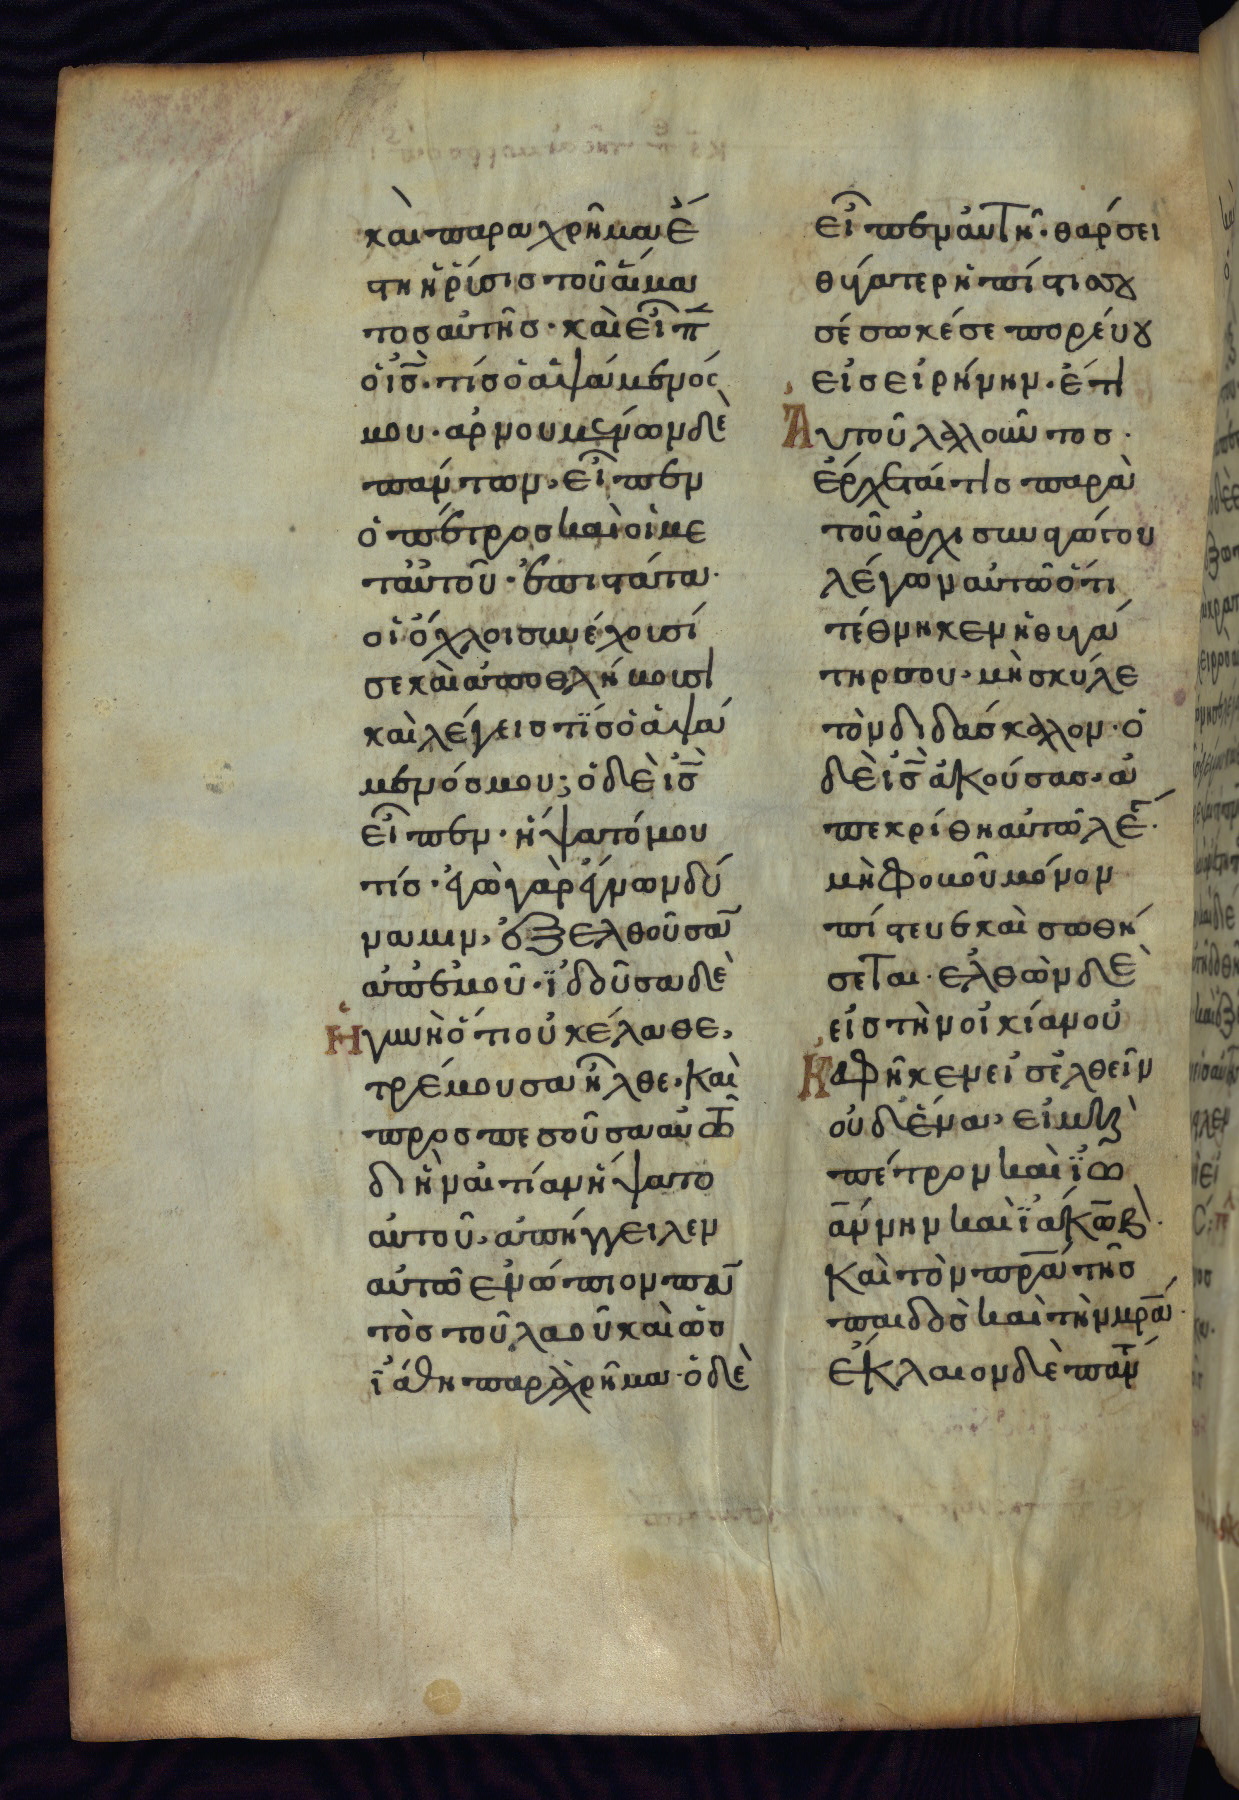 και παραχρῆμα ἔ
στη ἡ ῥύσις τοῦ αἵμα
τος αὐτῆς· καὶ εἶπ
ὁ ις̅· τίς ὁ ἁψάμενός
μου· ἀρνουμένων δὲ
πάντων, εἶπεν
ὁ πέτρος καὶ οἱ με
τ αὐτοῦ· ἐπιστάτα·
οἱ ὄχλοι συνέχουσί
σε καὶ ἀποθλίβουσι
καὶ λέγεις τίς ὁ ἁψά
μενός μου; ὁ δὲ ις̅
εἶπεν· ἥψατό μου
τίς· ἐγὼ γὰρ ἔγνων δύ
ναμιν, ἐξελθοῦσα̅
ἀπ ἐμοῦ· ἰδοῦσα δὲ
Ἡ γυνὴ ὅτι οὐκ ἔλαθε,
τρέμουσα ἦλθε· καὶ
προσπεσοῦσα αὐτῶ
δι ἣν αἰτίαν ἥψατο
αὐτοῦ, ἀπήγγειλεν
αὐτῶ ἐνώπιον πα̅
τὸς τοῦ λαοῦ καὶ ὡς
ἰάθη παραχρῆμα· ὁ δὲ
εἶπεν αὐτῆ· θάρσει
θύγατερ ἡ πίστις σου
σέσωκέ σε πορεύου
εἰς εἰρήνην· ἔτι
Αὐτοῦ λαλοῦντος·
ἔρχεταί τις παρὰ
τοῦ ἀρχισυναγώγου
λέγων αὐτῶ ὅτι
τέθνηκεν ἡ θυγά
τηρ σου· μὴ σκύλε
τὸν διδάσκαλον· ὁ
δὲ ις̅ ἀκούσας, ἀ
πεκρίθη αὐτῶ λέγ·
μὴ φοβοῦ μόνον
πίστευε καὶ σωθή
σεται· ἐλθὼν δὲ
εἰς τὴν οἰκίαν οὐ
Κ ἀφῆκεν εἰσελθεῖν
οὐδένα, εἰ μὴ
πέτρον καὶ ἰω
άννην καὶ ἰάκωβ·
καὶ τὸν πρ̅α τῆς
παιδὸς καὶ τὴν μρ̅α·
ἔκλαιον δὲ παντ